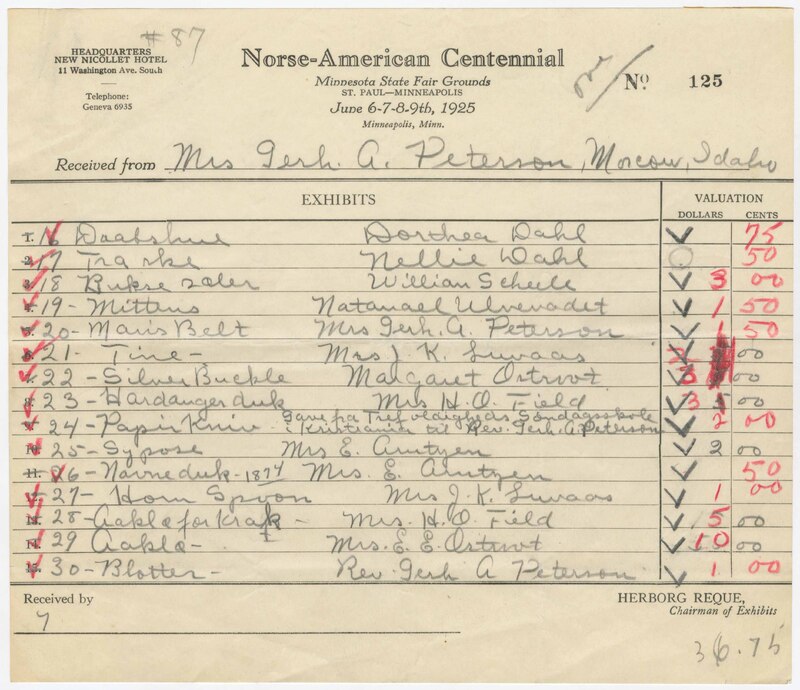 # 87
HEADQUARTERS
NEW NICOLLET HOTEL
11 Washington Ave. South
Telephone:
Geneva 6935
Norse-American Centennial
Minnesota State Fair Grounds
ST. PAUL—MINNEAPOLIS
June 6-7-8-9th, 1925
Minneapolis, Minn.
No 125
Received from Mrs Gerh. A. Peterson, Moscow, Idaho
EXHIBITS VALUATION
DOLLARS CENTS
1. 16 Daabshue Dorothea Dahl 75
2. 17 Traske Nellie Dahl 50
3. 18 Bukse saler William Scheele 3 00
4. 19- Mittens Natanael Ulvevadet 1 50
5. 20- Mans Belt Mrs Gerh. A. Peterson 1 50
6. 21- Tine- Mrs J. K. Luvaas 00
7. 22- Silver Buckle Margaret Ostroot 00
8. 23- Hardangerduk Mrs H. O. Field 3 00
9. 24- Papir Kniv Gave fra Trefoldigheds Søndagsskole
i Kristiania til Rev. Gerh. A. Peterson 2 00
10. 25- Sypose Mrs E. Arntzen 2 00
11. 26- Navneduk- 1874 Mrs. E. Arntzen 50
12. 27- Horn Spoon Mrs J. K. Luvaas 1 00
13. 28- Aaklæ for Krak- Mrs. H. O. Field 5 00
14. 29 Aaklæ- Mrs. E. E. Ostroot 10 00
15. 30- Blotter- Rev. Gerh A Peterson 1 00
Received by HERBORG REQUE,
Chairman of Exhibits
36.75